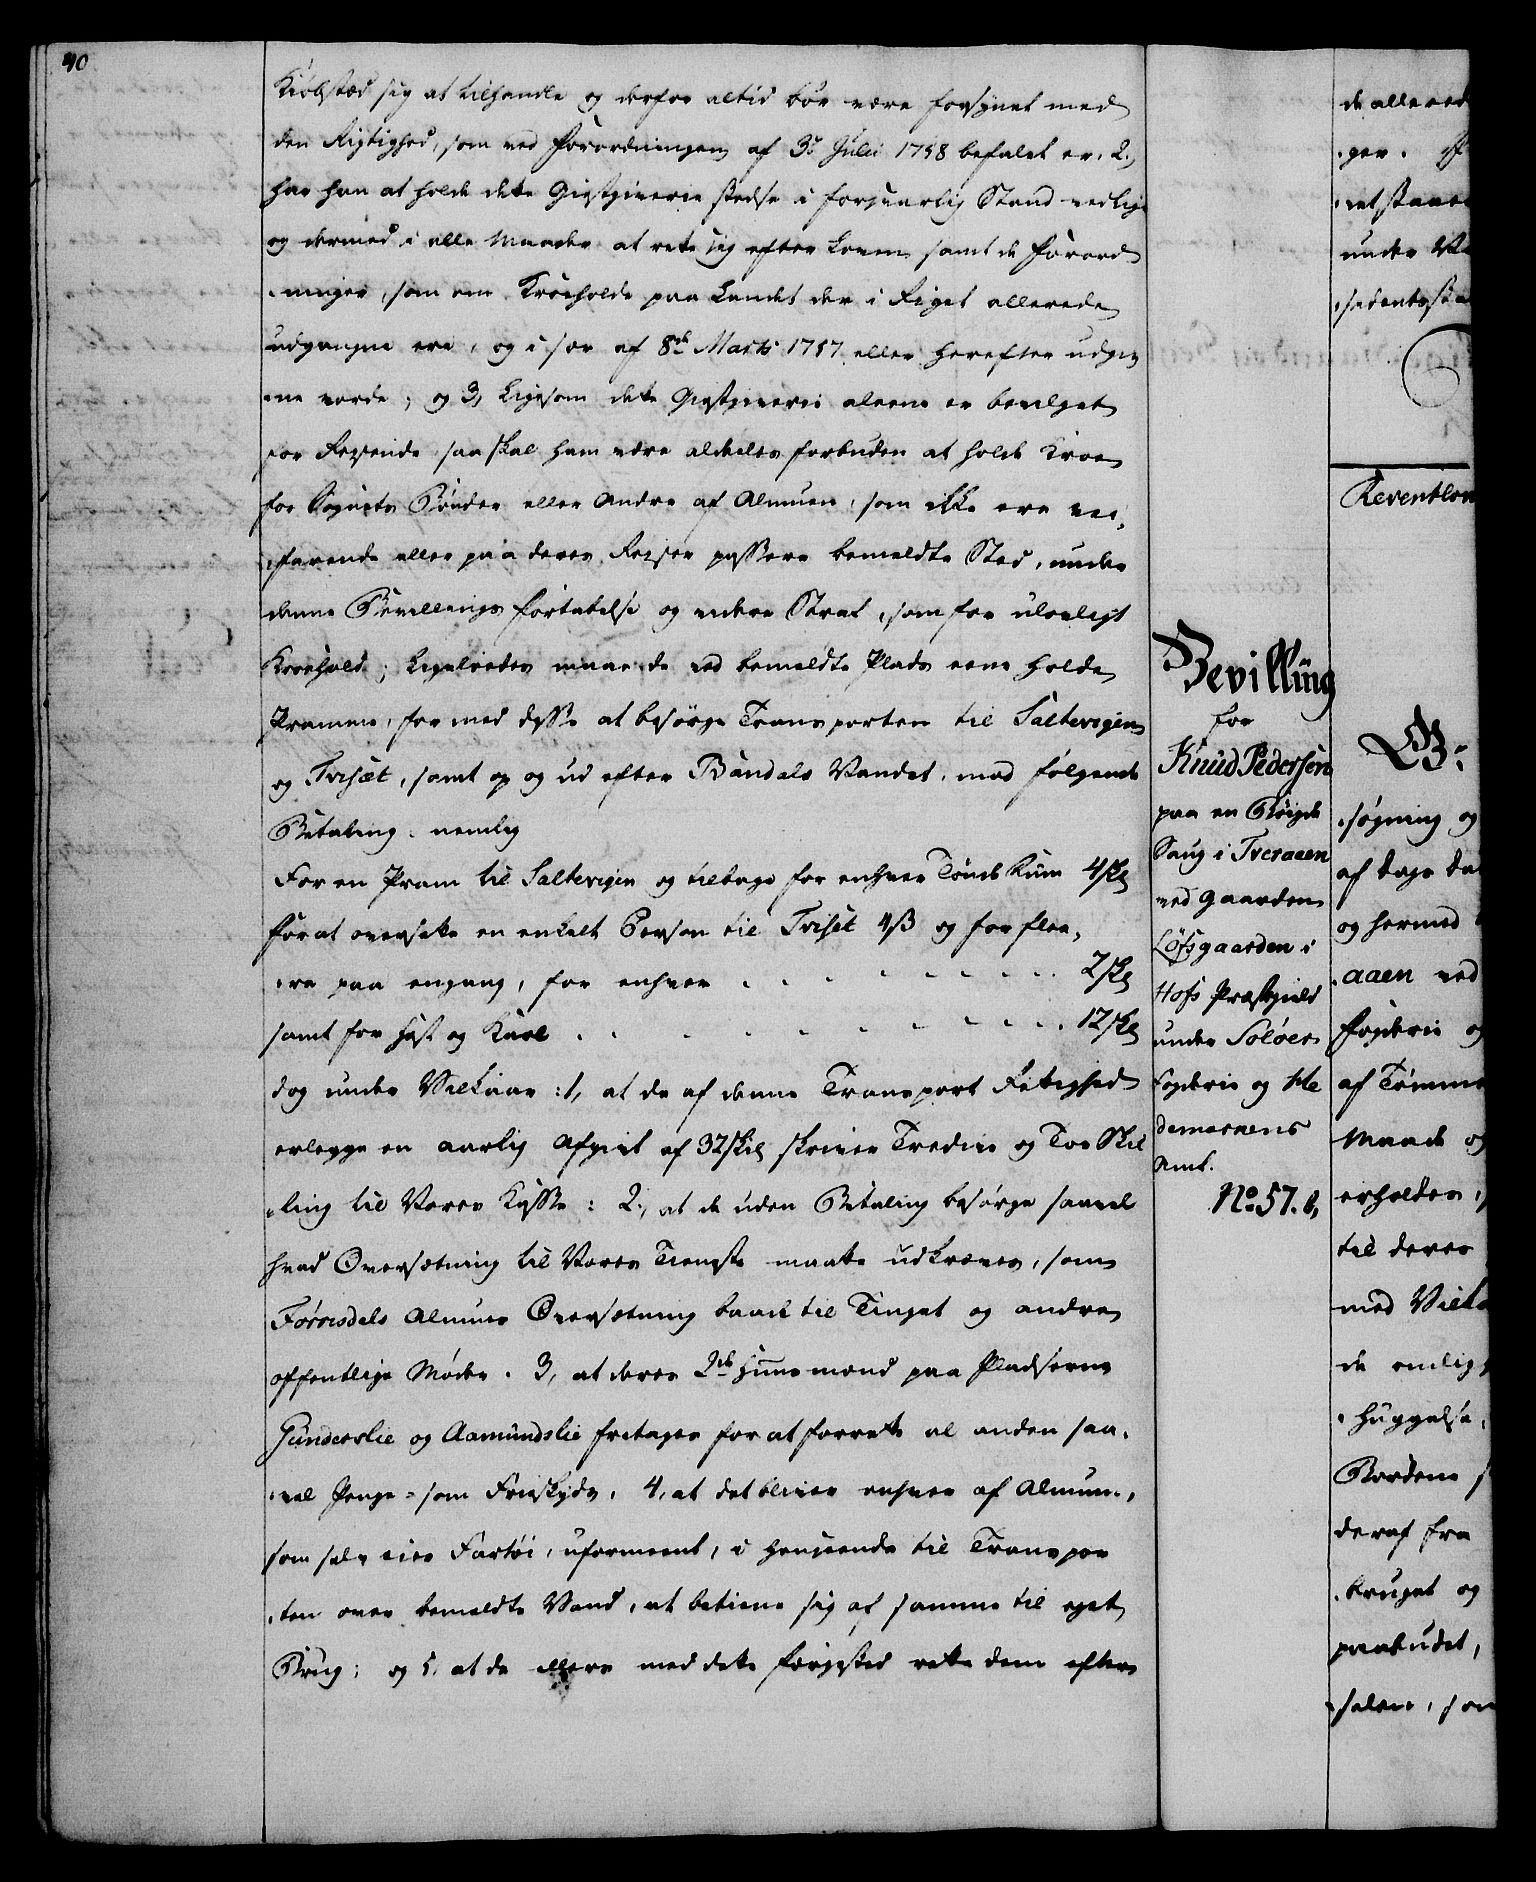 40
Kiøbstæd sig at tilhandle og derfor altid bør være forsynet med
den Rigtighed, som ved Forordningen af 3de Julii 1758 befalet er. 2,
har han at holde dette Giestgiverie stedse i forsvarlig Stand vedlige
og dermed i alle Maader at rette sig efter Loven samt de Forord
ninger, som om Kroeholde paa Landet der i Riget allerede
udgangne ere, og i sær af 8de Marts 1757 eller herefter udgiv
ne vorde; og 3, Ligesom dette Giestgiverie alleene er bevilget
for Rejsende saa skal ham være aldeles forbuden at holde Kroe
for Sognets Bønder eller Andre af Almuen, som ikke ere vei,
farende eller paa deres Reiser passere bemeldte Sted, under
denne Bevillings Fortabelse og videre Straf, som for ulovligt
Kroehold; Ligeledes maae de ved bemeldte Plads eene holde
Pramme, for med disse at besørge Transporten til Saltevigen
og Triset, samt op og ud efter Bandals Vandet, mod følgende
Betaling: nemlig
For en Pram til Saltevigen og tilbage for enhver Tønde Rum 4 sk
for at oversætte en enkelt Person til Triset 4 ß og for flee,
re paa engang, for enhver . . . . . . . . 2 sk
samt for Hest og Karl . . . . . . . . . 12 sk
dog under Vilkaar: 1, at de af denne Transport Rettighed
erlegge en aarlig Afgivt af 32 skil skriver Tredive og Toe Skil
ling til Vores Kasse: 2, at de uden Betaling besørge saavel
hvad Oversætning til Vores Tieneste maatte udkræves, som
Førrisdals Almues Oversætning baade til Tinget og andre
offentlige Møder. 3, at deres 2de Huusmænd paa Pladserne
Gunderslie og Aamundslie fritages for at forrette al anden saa,
vel Penge- som Friskyds, 4, at det bliver enhver af Almuen,
som selv eier Fartøi, uformeent, i Henseende til Transpor
ten over bemeldte Vand, at betiene sig af samme til eget
Brug; og 5, at de ellers med dette Færgested rette dem efter
Bevilling
for
Knud Pedersen
paa en Bøigde
Saug i Tveraaen
ved Gaarden
Løfsgaarden i
Hofs Præstegield
under Soløer
Fogderie og He
demarkens
Amt.
No 57. b,
de allered
ger.
net staae
under V
sedentsst
Reventlow
G:
søgning og
af Dags Da
og hermed
aaen ved
Fogderie og
af Tømme
Maade og
erholdes,
til deres
med Vilk
de endig
Huggelse,
Bordene s
deraf fra
bruget og
paabudet,
salene, som